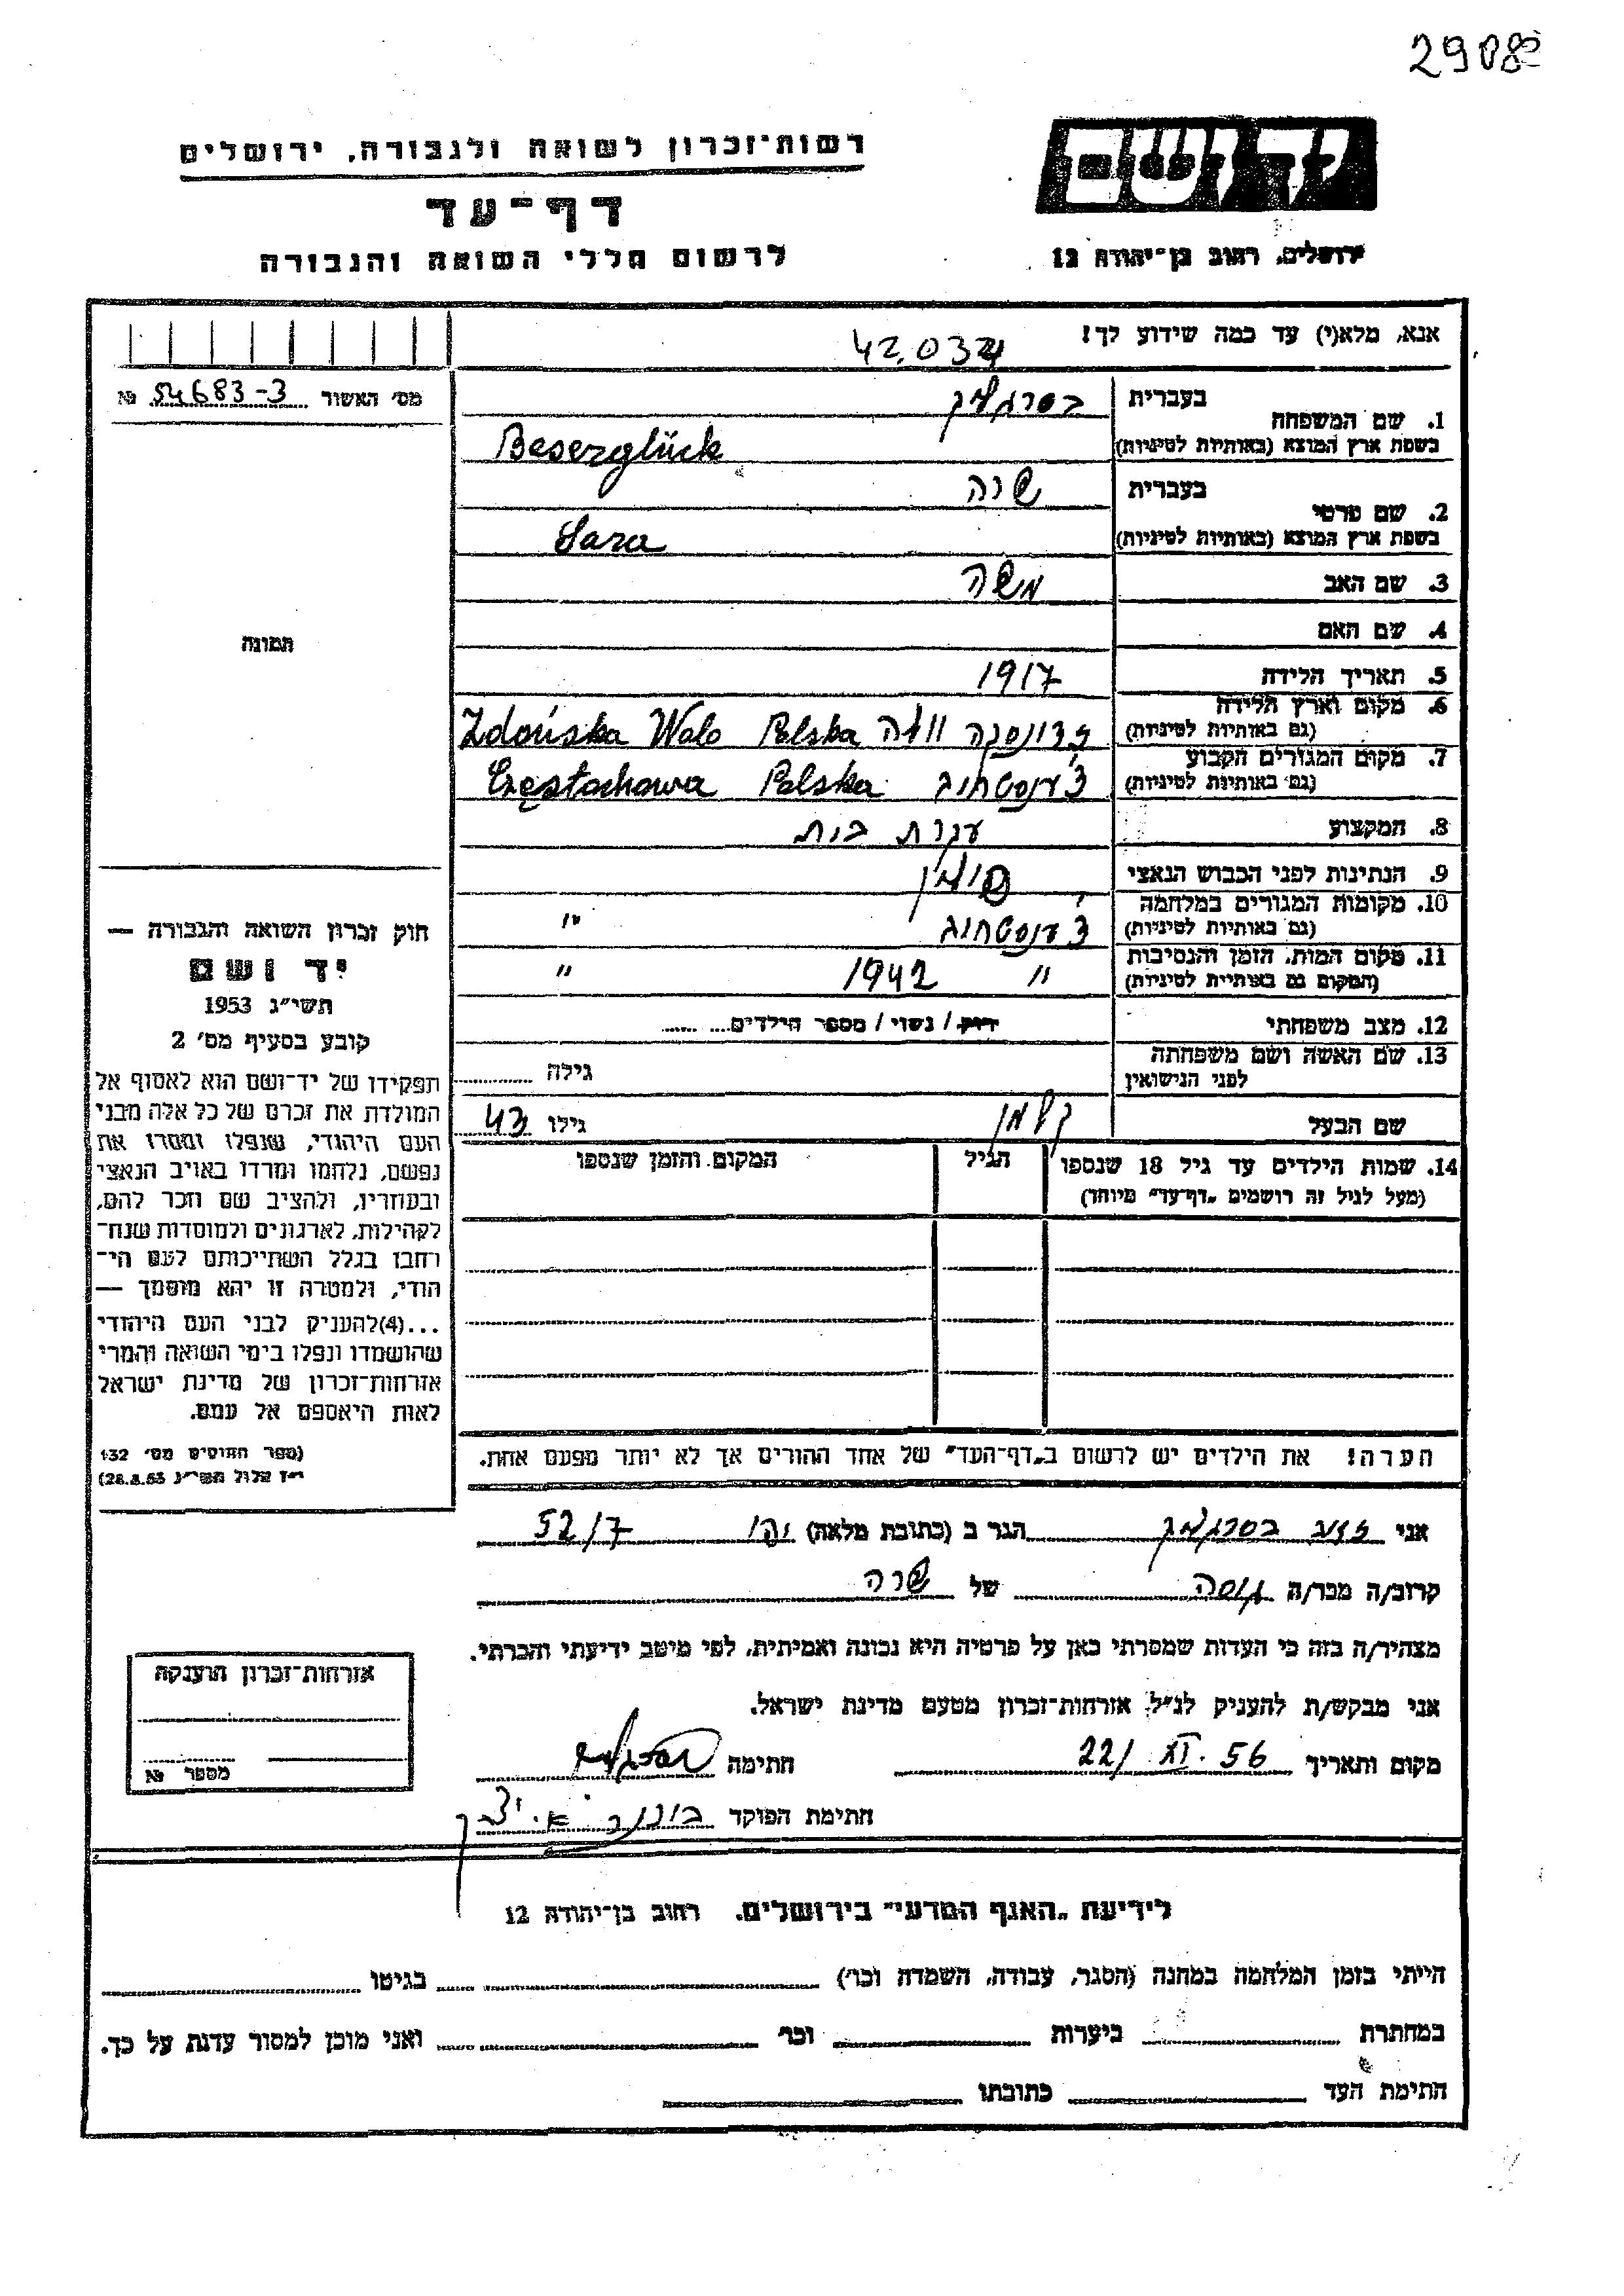 29082
יד ושם
ירושלים, רחוב בן־יהודה 12
רשות־זכרון לשואה ולגבורה, ירושלים
דף־עד
לרשום חללי השואה והגבורה
אנא, מלא(י) עד כמה שידוע לך!
42.032
מס׳ האשור 54683-3 №
1. שם המשפחה
בעברית בסרגליק
בשפת ארץ המוצא (באותיות לטיניות) Beserglück
2. שם פרטי
בעברית שרה
בשפת ארץ המוצא (באותיות לטיניות) Sara
3. שם האב משה
4. שם האם
5. תאריך הלידה 1917
6. מקום וארץ הלידה
(גם באותיות לטיניות) זדונסקה וולה Zdońska Wola Polska
7. מקום המגורים הקבוע
(גם באותיות לטיניות) צ׳נסטחוב Częstochowa Polska
8. המקצוע עקרת בית
9. הנתינות לפני הכבוש הנאצי פולין
10. מקומות המגורים במלחמה
(גם באותיות לטיניות) צ׳נסטחוב "
11. מקום המות, הזמן והנסיבות
(המקום גם באותיות לטיניות) " 1942 "
12. מצב משפחתי רוק / נשוי / מספר הילדים
13. שם האשה ושם משפחתה
לפני הנישואין גילה
שם הבעל קלמן גילו 43
14. שמות הילדים עד גיל 18 שנספו
(מעל לגיל זה רושמים „דף־עד" מיוחד)
הגיל
המקום והזמן שנספו
הערה! את הילדים יש לרשום ב„דף־העד" של אחד ההורים אך לא יותר מפעם אחת.
תמונה
חוק זכרון השואה והגבורה —
יד ושם
תשי״ג 1953
קובע בסעיף מס׳ 2
תפקידו של יד־ושם הוא לאסוף אל
המולדת את זכרם של כל אלה מבני
העם היהודי, שנפלו ומסרו את
נפשם, נלחמו ומרדו באויב הנאצי
ובעוזריו, ולהציב שם וזכר להם,
לקהילות, לארגונים ולמוסדות שנח־
רחבו בגלל השתייכותם לעם הי־
הודי, ולמטרה זו יהא מוסמך —
...(4)להעניק לבני העם היהודי
שהושמדו ונפלו בימי השואה והמרי
אזרחות־זכרון של מדינת ישראל
לאות היאספם אל עמם.
(ספר החוקים מס׳ 132
י״ז אלול תשי״ג 28.8.53)
אני זאב בסרגליק הגר ב (כתובת מלאה) 52/7
קרוב/ה מכר/ה גיסה של שרה
מצהיר/ה בזה כי העדות שמסרתי כאן על פרטיה היא נכונה ואמיתית, לפי מיטב ידיעתי והכרתי.
אני מבקש/ת להעניק לנ״ל אזרחות־זכרון מטעם מדינת ישראל.
מקום ותאריך 22/ XI. 56 חתימה בסרגליק
חתימת הפוקד
אזרחות־זכרון הוענקה
מספר №
לידיעת „האגף המדעי" בירושלים, רחוב בן־יהודה 12
הייתי בזמן המלחמה במחנה (הסגר, עבודה, השמדה וכר׳) בגיטו
במחתרת ביערות וכר׳ ואני מוכן למסור עדות על כך.
חתימת העד כתובתו